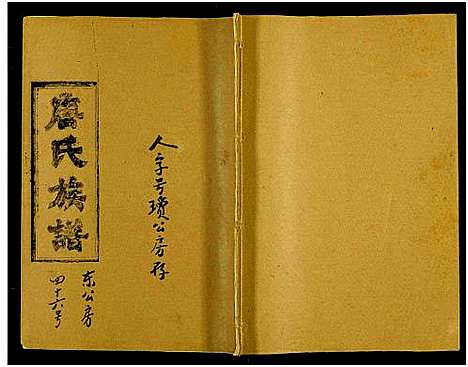 唐氏族譜
人字号瓊公房存
东公房
四十六号